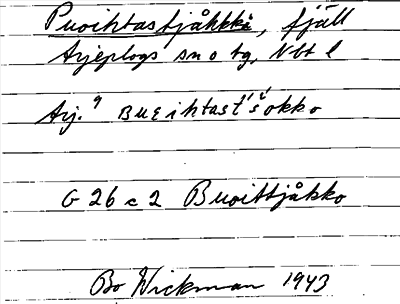 Puoihtastjåhkkå, fjäll
Arjeplogs sn o tg, Nbt l
Arj. 9 BUEihtast'š'okko
G 26 c 2 Buoittjåkko
Bo Wickman 1943